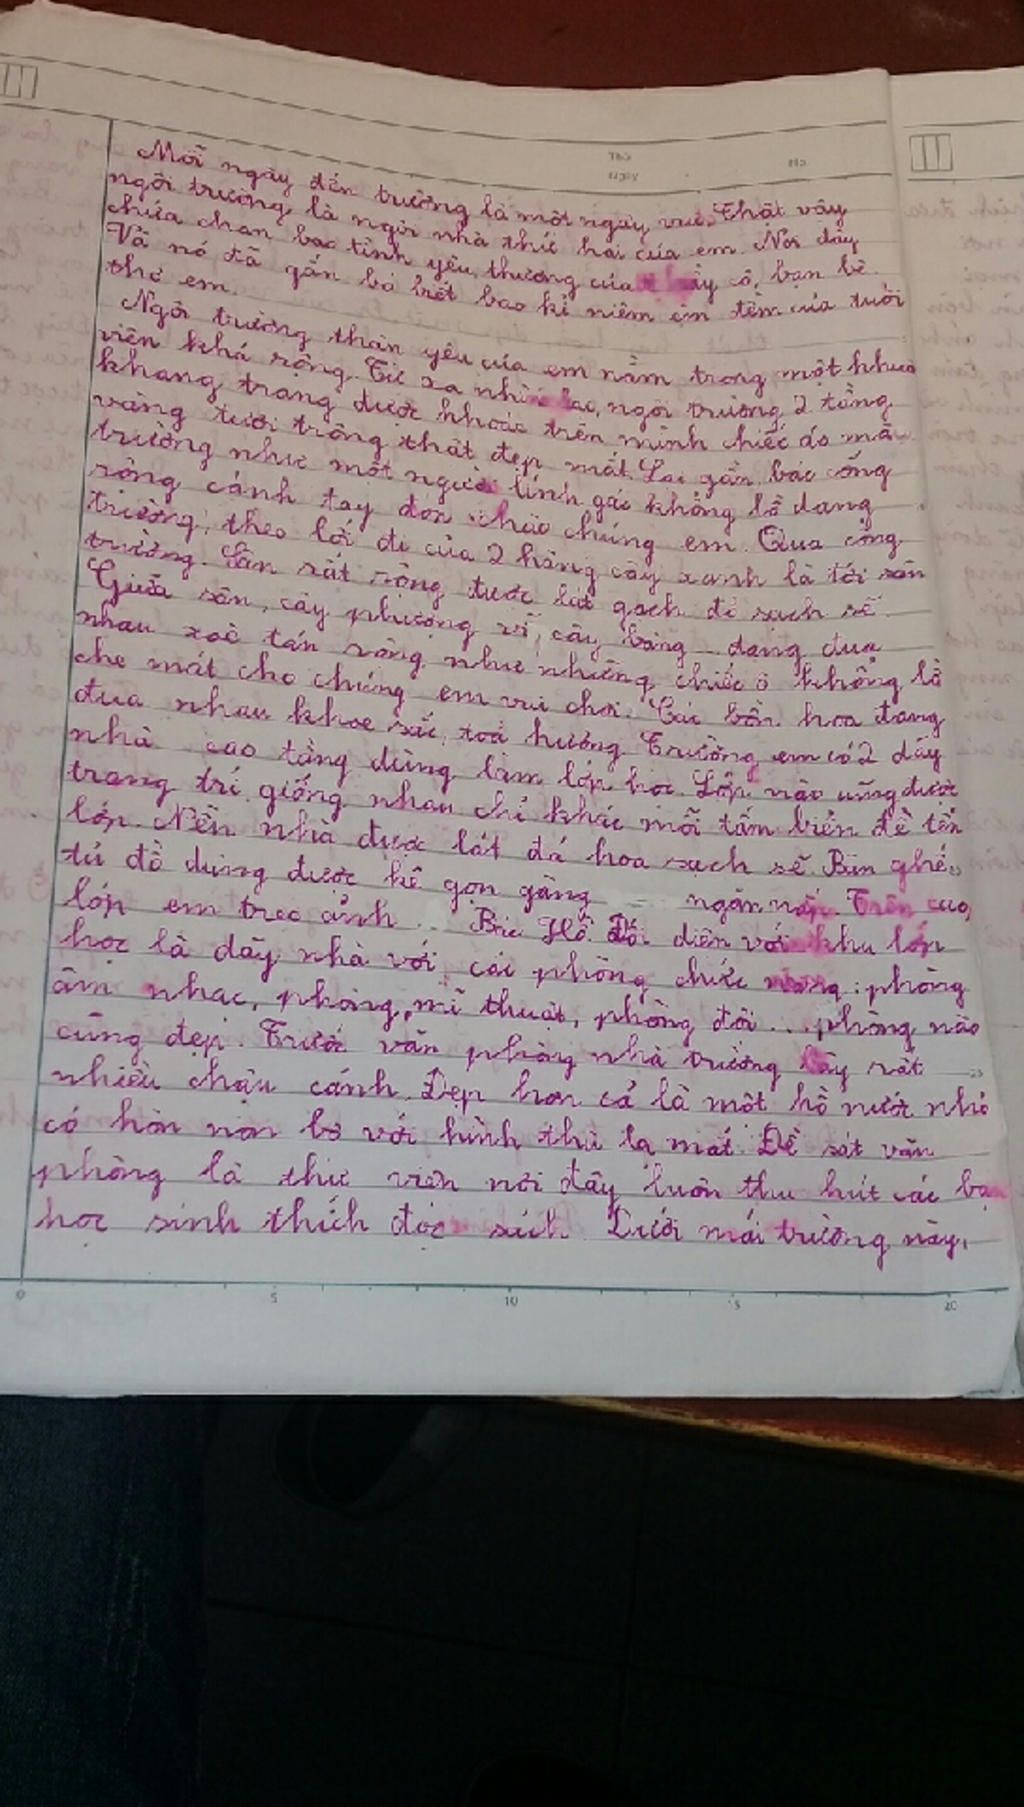 Thứ
Ngày
No.
Mỗi ngày đến trường là một ngày vui. Thật vậy
ngôi trường là ngôi nhà thứ hai của em. Nơi đây
chứa chan bao tình yêu thương của cô, bạn bè.
Và nó đã gắn bó biết bao kỉ niệm êm đềm của tuổi
thơ em.
Ngôi trường thân yêu của em nằm trong một khuô
viên khá rộng. Từ xa nhìn ngôi trường 2 tầng
khang trang được khoác trên mình chiếc áo màu
vàng tươi trông thật đẹp mắt. Lại gần, bác cổng
trường như một người lính gác khổng lồ dang
rộng cánh tay đón chào chúng em. Qua cổng
trường, theo lối đi của 2 hàng cây xanh là tới sân
trường. Sân rất rộng được lát gạch đỏ sạch sẽ.
Giữa sân, cây phượng vĩ, cây bàng đang đua
nhau xoè tán rộng như những chiếc ô khổng lồ
che mát cho chúng em vui chơi. Các bồn hoa đang
đua nhau khoe sắc, toả hương. Trường em có 2 dãy
nhà cao tầng dùng làm lớp học. Lớp nào cũng được
trang trí giống nhau chỉ khác mỗi tấm biển đề tên
lớp. Nền nhà được lát đá hoa sạch sẽ. Bàn ghế,
tủ đồ dùng được kê gọn gàng ngăn nắp. Trên cao,
lớp em treo ảnh Bác Hồ. Đối diện với khu lớp
học là dãy nhà với các phòng chức năng: phòng
âm nhạc, phòng mĩ thuật, phòng đội ... phòng nào
cũng đẹp. Trước văn phòng nhà trường bày rất
nhiều chậu cảnh. Đẹp hơn cả là một hồ nước nhỏ
có hòn non bộ với hình thù lạ mắt. Đề sát văn
phòng là thư viện nơi đây luôn thu hút các bạn
học sinh thích đọc sách. Dưới mái trường này,
0 5 10 15 20